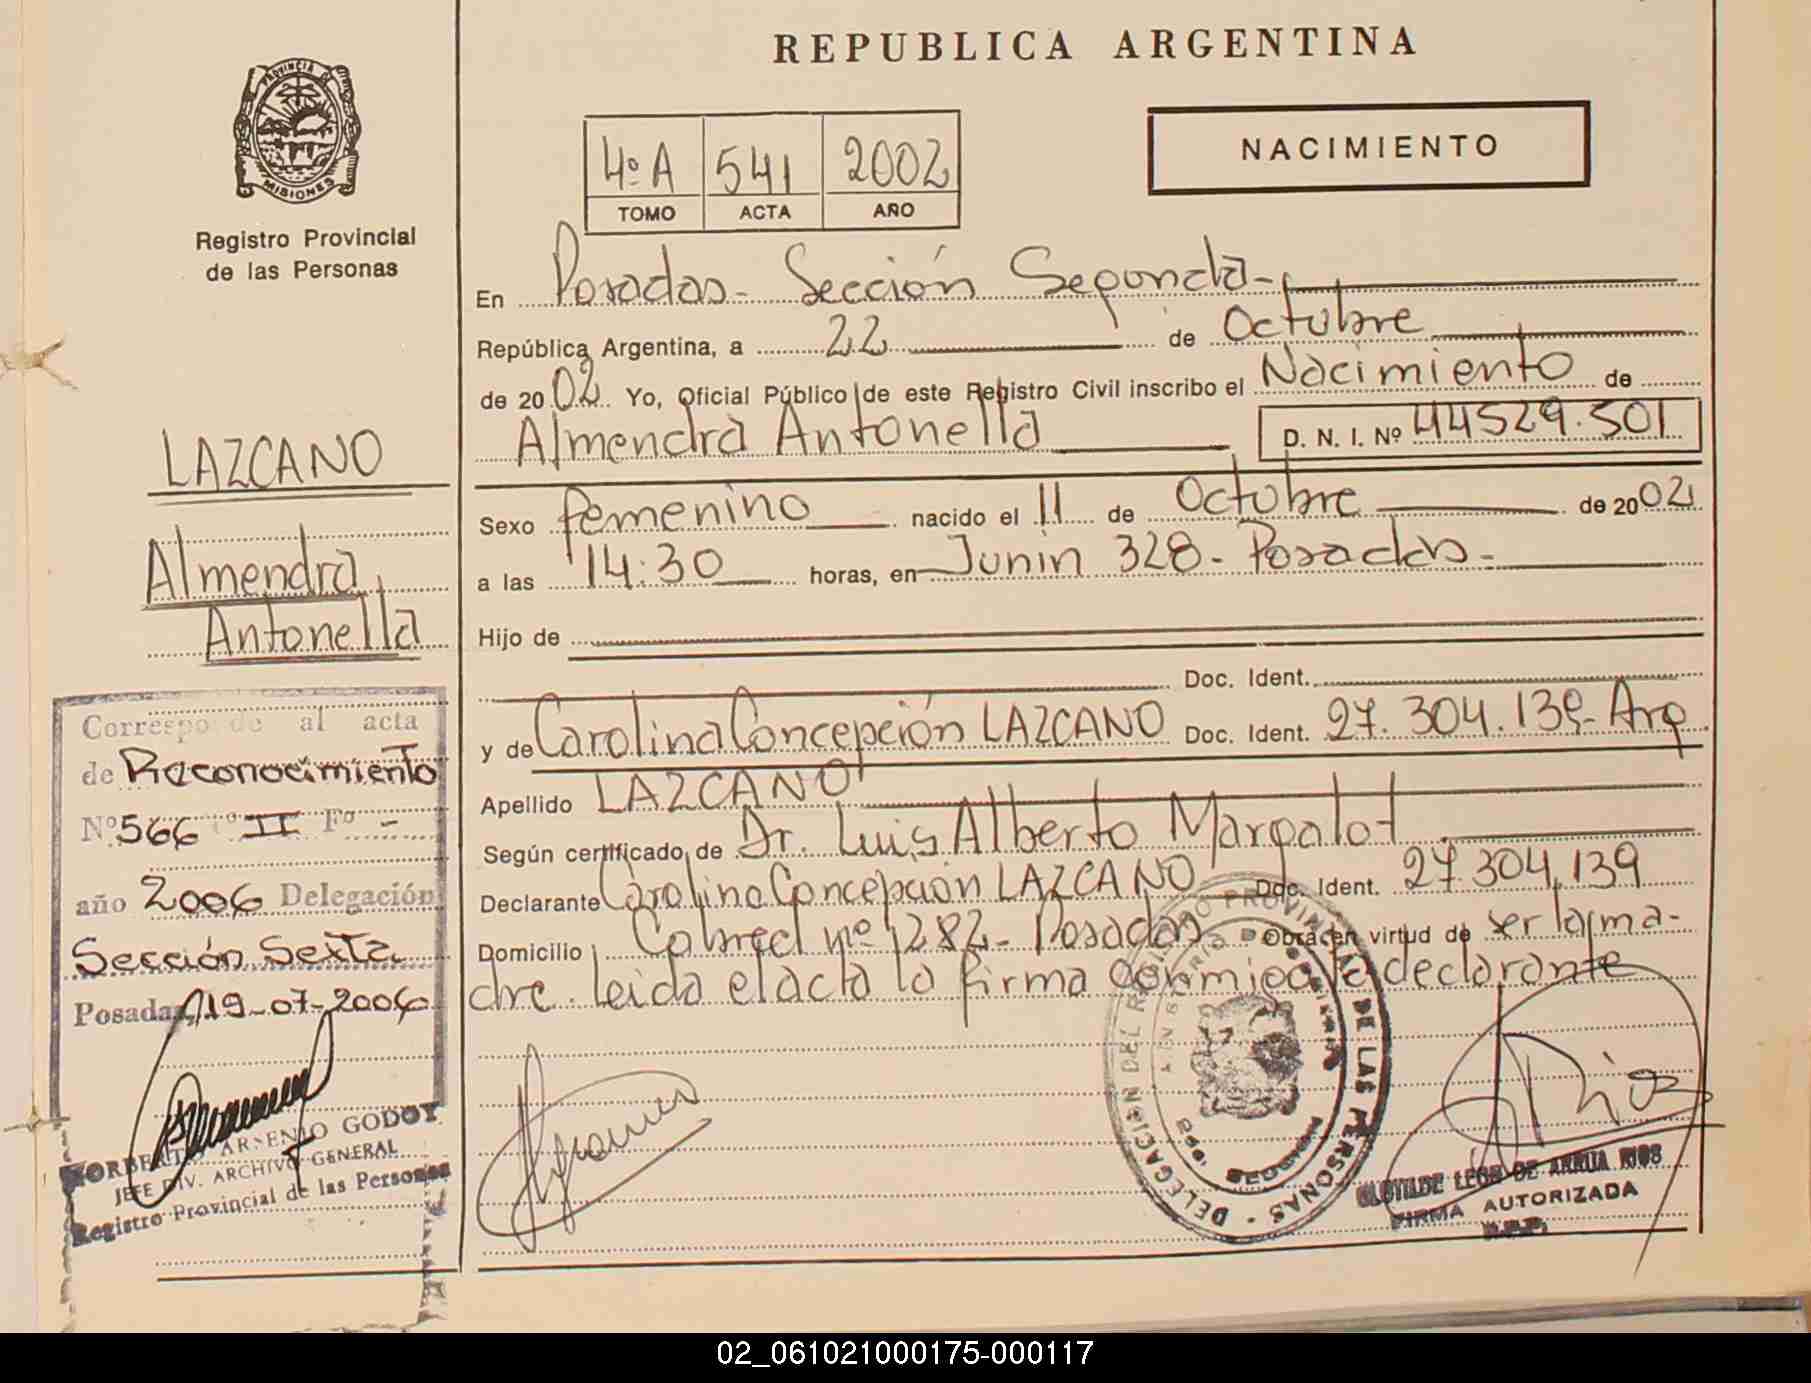 REPUBLICA ARGENTINA
PROVINCIA DE
MISIONES
Registro Provincial
de las Personas
4º A 541 2002
TOMO ACTA AÑO
NACIMIENTO
En Posadas - Sección Segunda -
República Argentina, a 22 de Octubre
de 2002 Yo, Oficial Público de este Registro Civil inscribo el Nacimiento de
Almendra Antonella D. N. I. Nº 44529.501
Sexo femenino nacido el 11 de Octubre de 2002
a las 14:30 horas, en Junin 328 - Posadas -
Hijo de
Doc. Ident.
y de Carolina Concepción LAZCANO Doc. Ident. 27.304.139 - Arg
Apellido LAZCANO
Según certificado de Dr. Luis Alberto Margalot
Declarante Carolina Concepción LAZCANO Doc. Ident. 27.304.139
Domicilio Cabred nº 1282 - Posadas Obra en virtud de ser la ma-
dre. leida el acta la firma conmigo la declarante
LAZCANO
Almendra
Antonella
Corresponde al acta
de Reconocimiento
Nº 566 Tº II Fº -
año 2006 Delegación
Sección Sexta
Posadas, 19-07-2006
NORBERTO ARSENIO GODOY
JEFE DIV. ARCHIVO GENERAL
Registro Provincial de las Personas
DELEGACION DEL REGISTRO PROVINCIAL DE LAS PERSONAS
POSADAS MISIONES
Rios
CLOTILDE DE ARRUA RIOS
FIRMA AUTORIZADA
02_061021000175-000117